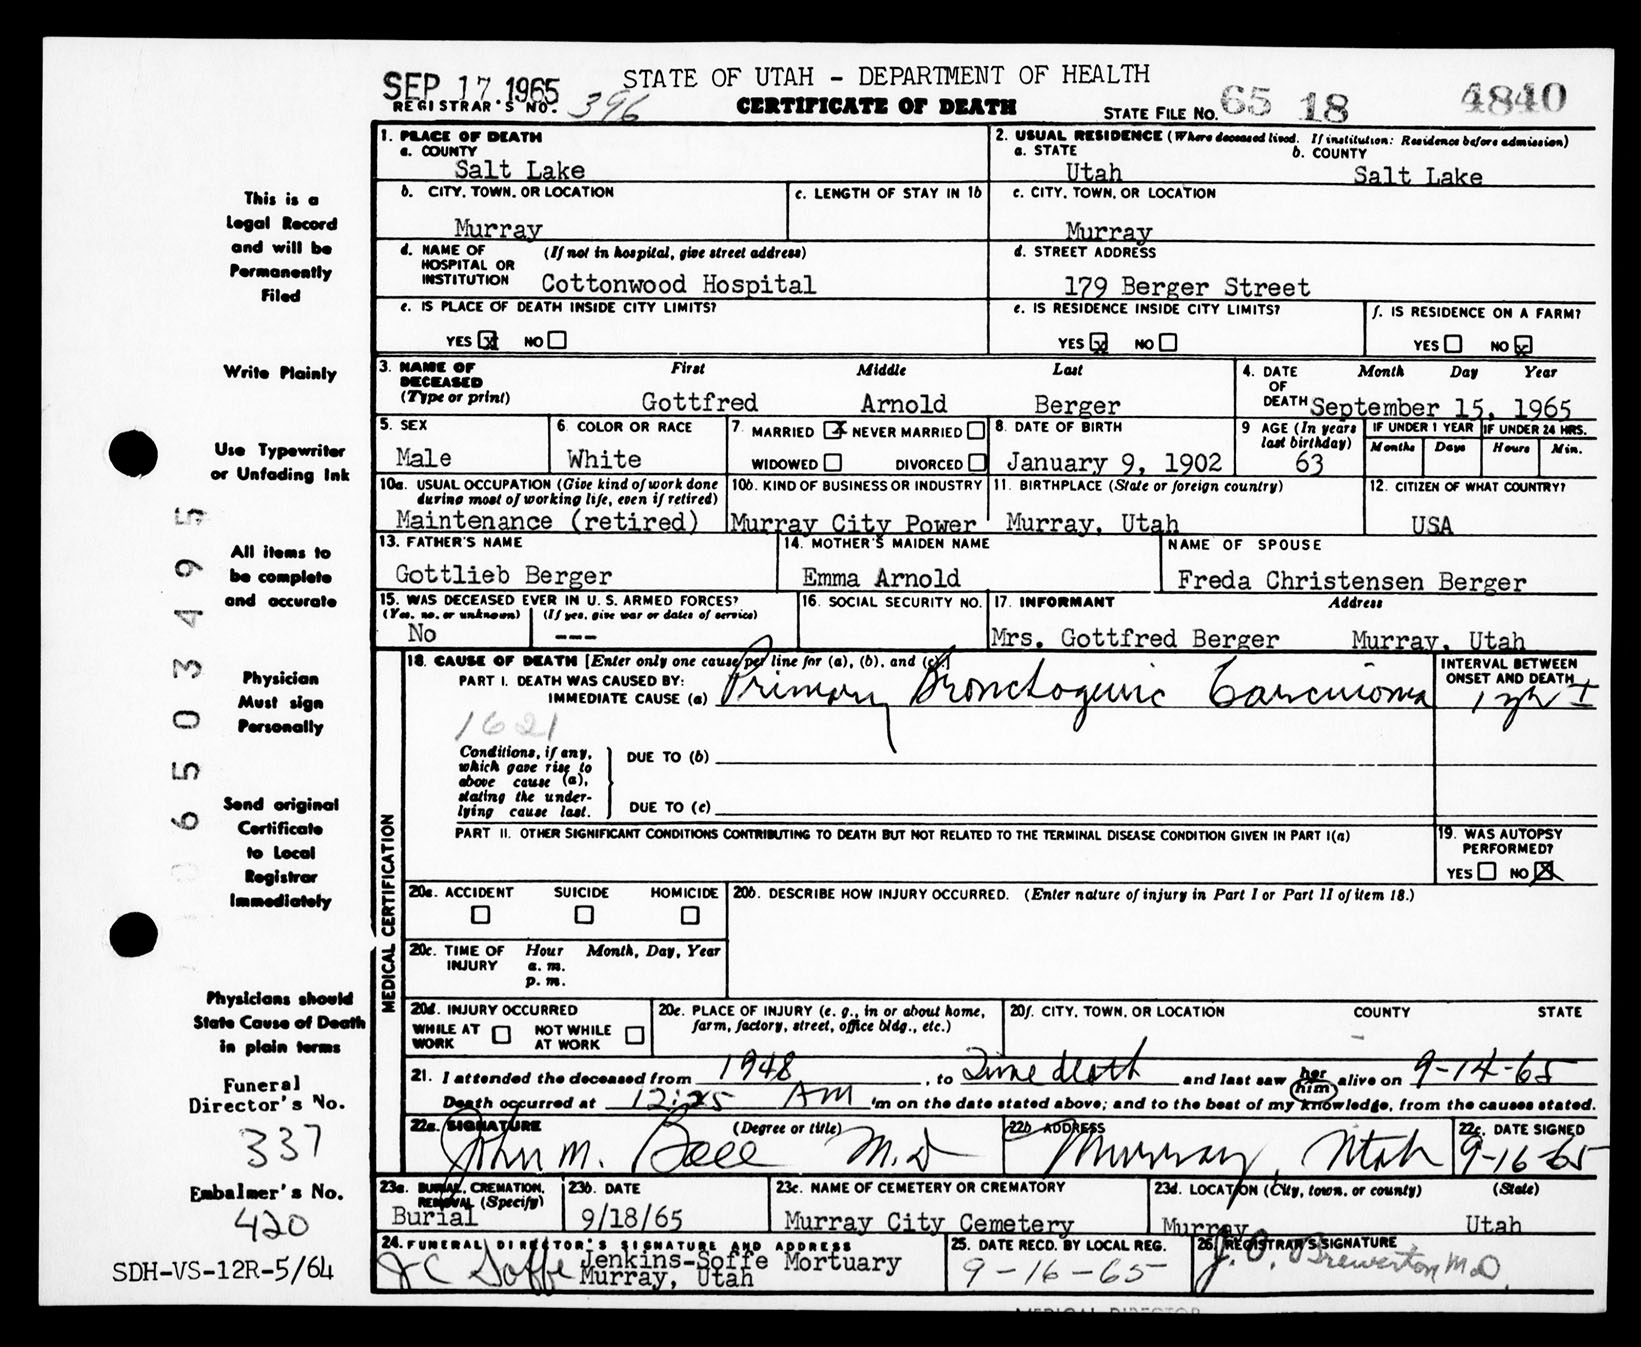 SEP 17 1965
STATE OF UTAH - DEPARTMENT OF HEALTH
REGISTRAR'S NO. 396
CERTIFICATE OF DEATH
STATE FILE NO. 65 18 4840
1. PLACE OF DEATH
a. COUNTY
Salt Lake
2. USUAL RESIDENCE (Where deceased lived. If institution: Residence before admission)
a. STATE b. COUNTY
Utah Salt Lake
b. CITY, TOWN, OR LOCATION
Murray
c. LENGTH OF STAY IN 1b
c. CITY, TOWN, OR LOCATION
Murray
d. NAME OF (If not in hospital, give street address)
HOSPITAL OR
INSTITUTION Cottonwood Hospital
d. STREET ADDRESS
179 Berger Street
e. IS PLACE OF DEATH INSIDE CITY LIMITS?
YES x NO
e. IS RESIDENCE INSIDE CITY LIMITS?
YES x NO
f. IS RESIDENCE ON A FARM?
YES NO x
3. NAME OF First Middle Last
DECEASED
(Type or print) Gottfred Arnold Berger
4. DATE Month Day Year
OF
DEATH September 15, 1965
5. SEX
Male
6. COLOR OR RACE
White
7. MARRIED x NEVER MARRIED
WIDOWED DIVORCED
8. DATE OF BIRTH
January 9, 1902
9 AGE (In years
last birthday)
63
IF UNDER 1 YEAR
Months Days
IF UNDER 24 HRS.
Hours Min.
10a. USUAL OCCUPATION (Give kind of work done
during most of working life, even if retired)
Maintenance (retired)
10b. KIND OF BUSINESS OR INDUSTRY
Murray City Power
11. BIRTHPLACE (State or foreign country)
Murray, Utah
12. CITIZEN OF WHAT COUNTRY?
USA
13. FATHER'S NAME
Gottlieb Berger
14. MOTHER'S MAIDEN NAME
Emma Arnold
NAME OF SPOUSE
Freda Christensen Berger
15. WAS DECEASED EVER IN U. S. ARMED FORCES?
(Yes, no, or unknown) (If yes, give war or dates of service)
No ---
16. SOCIAL SECURITY NO.
17. INFORMANT Address
Mrs. Gottfred Berger Murray, Utah
MEDICAL CERTIFICATION
18. CAUSE OF DEATH [Enter only one cause per line for (a), (b), and (c).]
PART I. DEATH WAS CAUSED BY:
IMMEDIATE CAUSE (a) Primary Bronchogenic Carcinoma
INTERVAL BETWEEN
ONSET AND DEATH
1 yr ±
1621
Conditions, if any,
which gave rise to
above cause (a),
stating the under-
lying cause last.
DUE TO (b)
DUE TO (c)
PART II. OTHER SIGNIFICANT CONDITIONS CONTRIBUTING TO DEATH BUT NOT RELATED TO THE TERMINAL DISEASE CONDITION GIVEN IN PART I(a)
19. WAS AUTOPSY
PERFORMED?
YES NO X
20a. ACCIDENT SUICIDE HOMICIDE
20b. DESCRIBE HOW INJURY OCCURRED. (Enter nature of injury in Part I or Part II of item 18.)
20c. TIME OF Hour Month, Day, Year
INJURY a. m.
p. m.
20d. INJURY OCCURRED
WHILE AT WORK NOT WHILE AT WORK
20e. PLACE OF INJURY (e. g., in or about home,
farm, factory, street, office bldg., etc.)
20f. CITY, TOWN, OR LOCATION COUNTY STATE
21. I attended the deceased from 1948, to Time death and last saw her him alive on 9-14-65
Death occurred at 12:25 AM 'm on the date stated above; and to the best of my knowledge, from the causes stated.
22a. SIGNATURE (Degree or title)
John M. Bace M.D
22b ADDRESS
Murray, Utah
22c. DATE SIGNED
9-16-65
23a. BURIAL, CREMATION,
REMOVAL (Specify)
Burial
23b. DATE
9/18/65
23c. NAME OF CEMETERY OR CREMATORY
Murray City Cemetery
23d. LOCATION (City, town, or county) (State)
Murray Utah
24. FUNERAL DIRECTOR'S SIGNATURE AND ADDRESS
J C Soffe Jenkins-Soffe Mortuary
Murray, Utah
25. DATE RECD. BY LOCAL REG.
9-16-65
26. REGISTRAR'S SIGNATURE
J. O. Brewerton M.D.
MEDICAL DIRECTOR
This is a
Legal Record
and will be
Permanently
Filed
Write Plainly
Use Typewriter
or Unfading Ink
All items to
be complete
and accurate
Physician
Must sign
Personally
Send original
Certificate
to Local
Registrar
Immediately
Physicians should
State Cause of Death
in plain terms
Funeral
Director's No.
337
Embalmer's No.
420
SDH-VS-12R-5/64
0650 3495